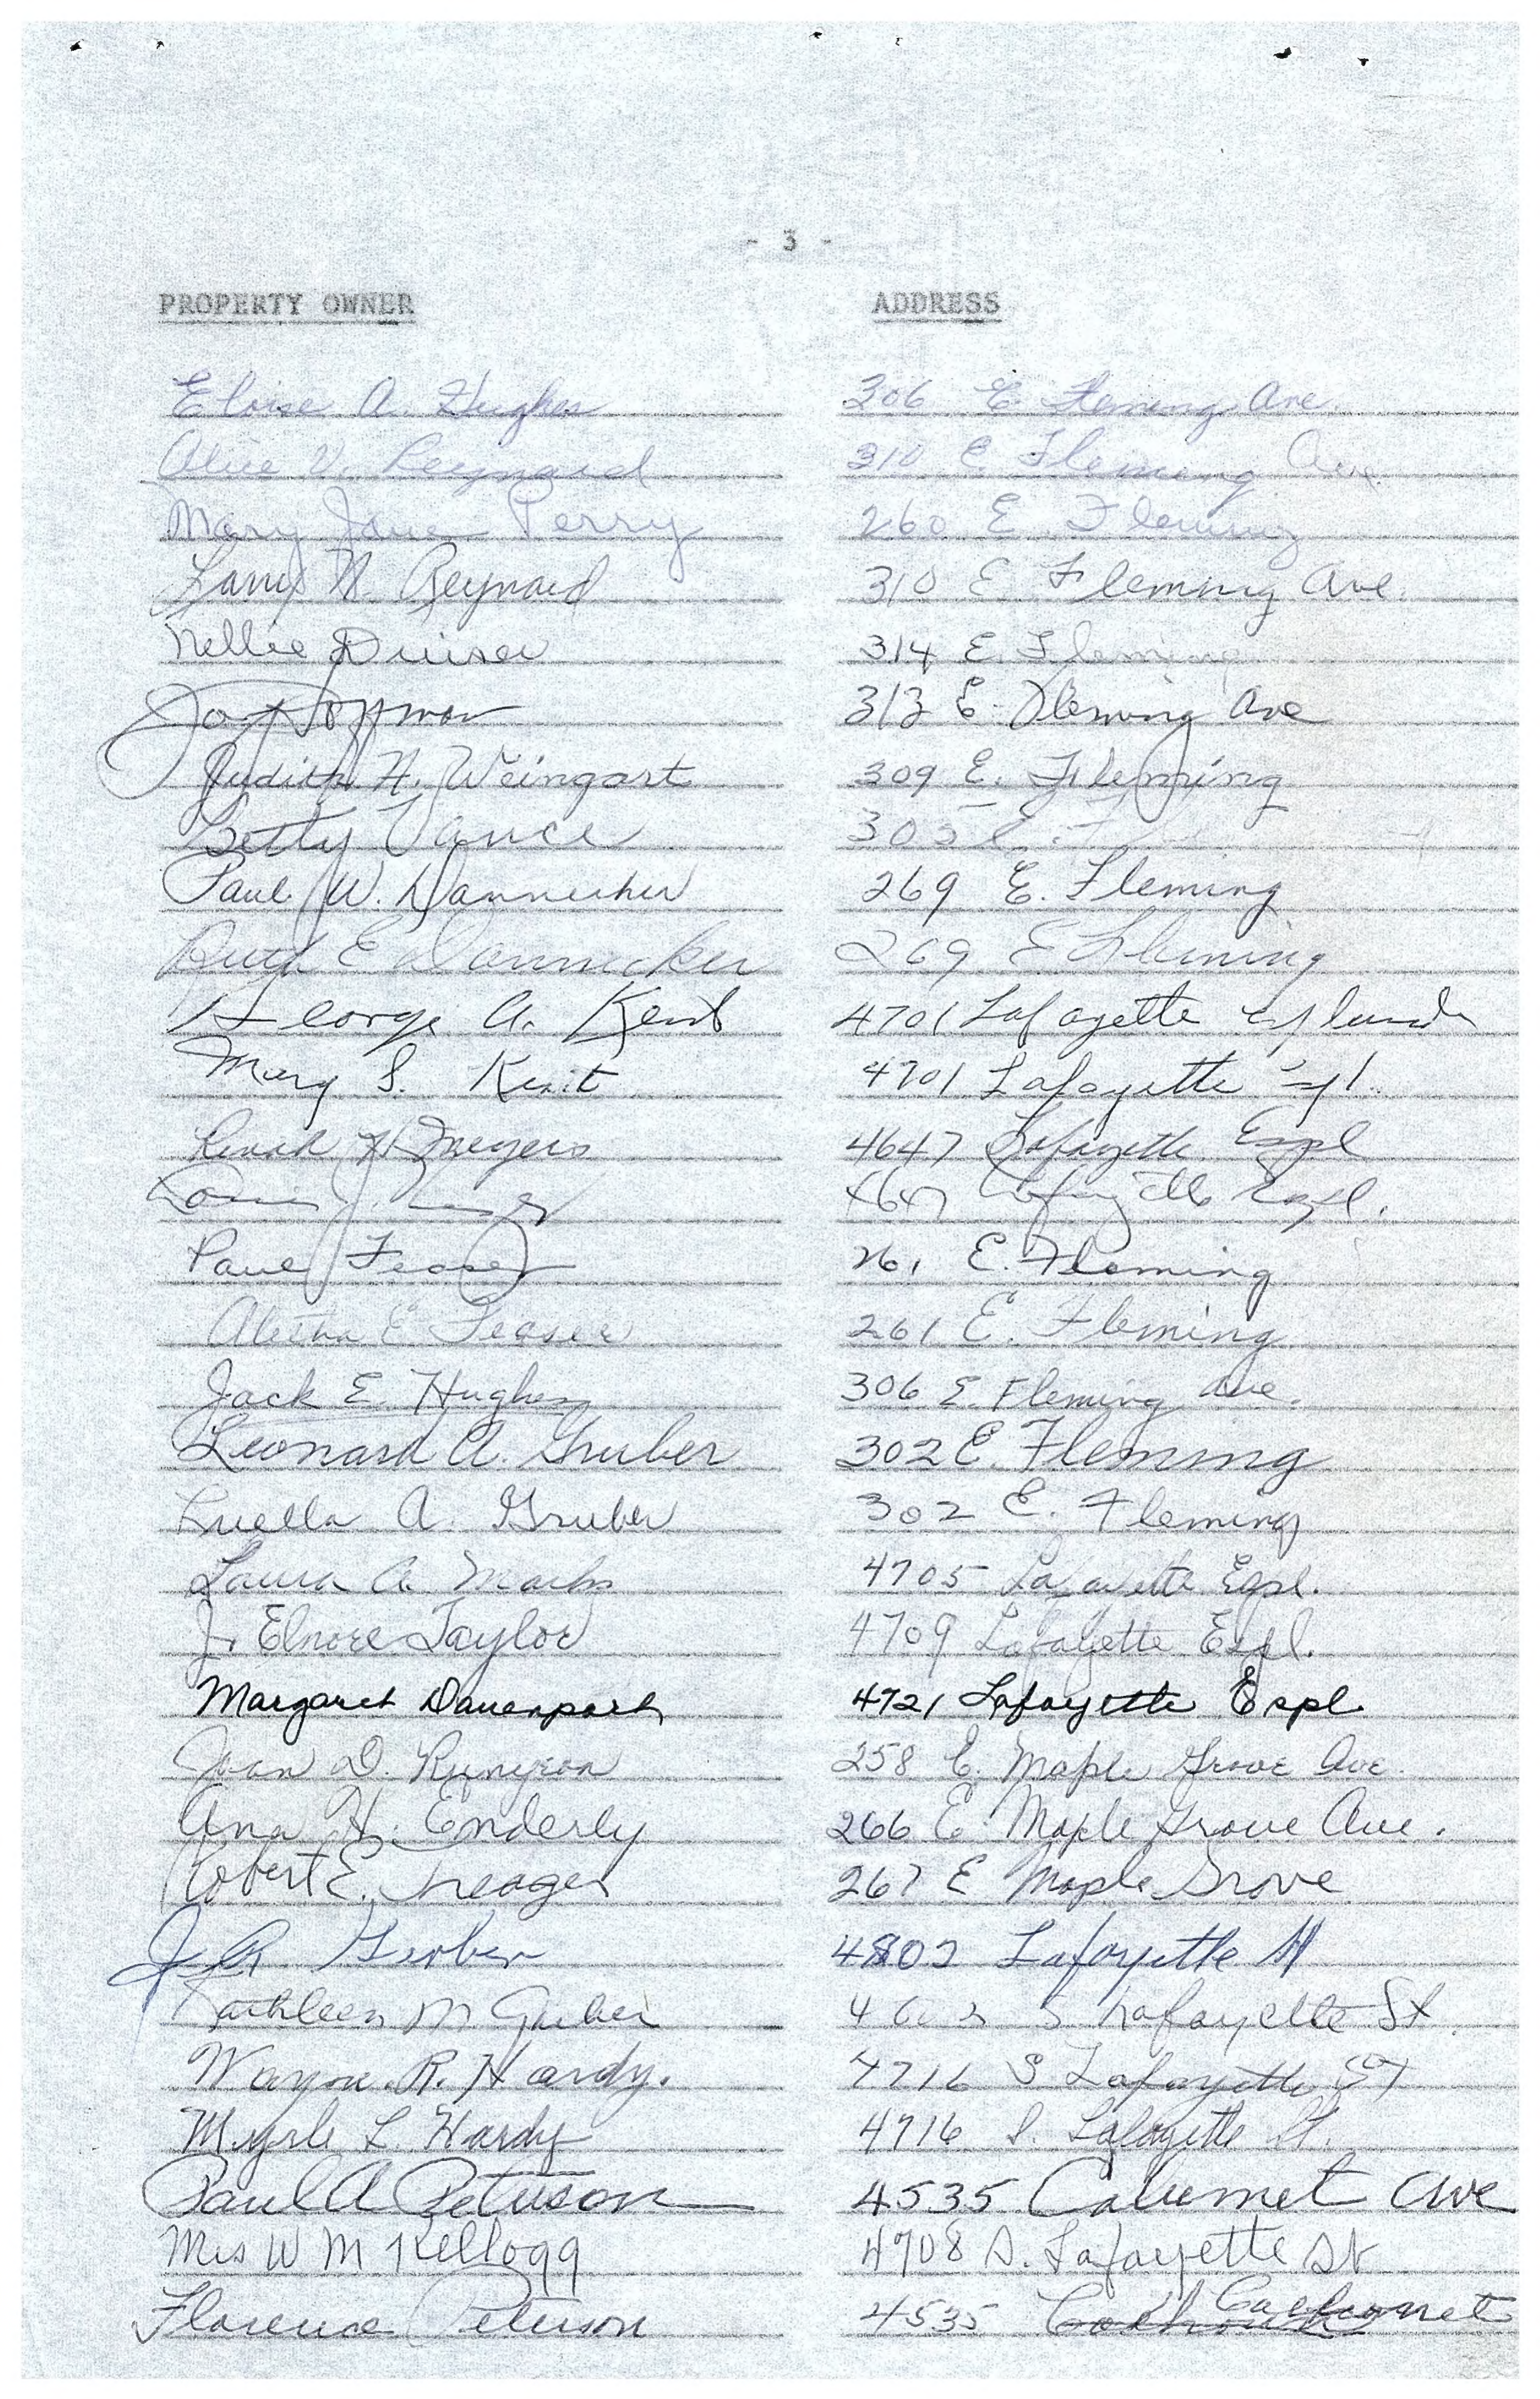 - 3 -
PROPERTY OWNER ADDRESS
Eloise A. Hughes 306 E. Fleming Ave.
Alice V. Reynard 310 E. Fleming Ave.
Mary Jane Perry 260 E. Fleming
Larry N. Reynard 310 E. Fleming Ave.
Nellie 314 E. Fleming
313 E. Fleming Ave
Judith N. Weingart 309 E. Fleming
Betty Vance 305 E.
Paul W. Dannecker 269 E. Fleming
Ruth E Dannecker 269 E Fleming
George A. Kent 4701 Lafayette
Mary S. Kent 4701 Lafayette
Meyers 4647 Lafayette Espl
4647 Lafayette Espl.
Paul Feaser 261 E. Fleming
Aletha E Feaser 261 E. Fleming
Jack E. Hughes 306 E. Fleming Ave.
Leonard A. Gruber 302 E. Fleming
Luella A. Gruber 302 E. Fleming
Laura A. Marks 4705 Lafayette Espl.
J. Elnore Taylor 4709 Lafayette Espl.
Margaret Davenport 4721 Lafayette Espl.
Joan D. Runyeon 258 E. Maple Grove Ave.
Ana H. Enderly 266 E. Maple Grove Ave.
Robert E. 267 E Maple Grove
J R Gruber 4802 Lafayette St
Kathleen M. Gruber S Lafayette St.
Wayne R. Hardy. 4716 S Lafayette St
Myrle L. Hardy 4716 S. Lafayette St.
Paul A Peterson 4535 Calumet Ave
Mrs W M Kellogg 4708 S. Lafayette St
Florence Peterson 4535 Calumet